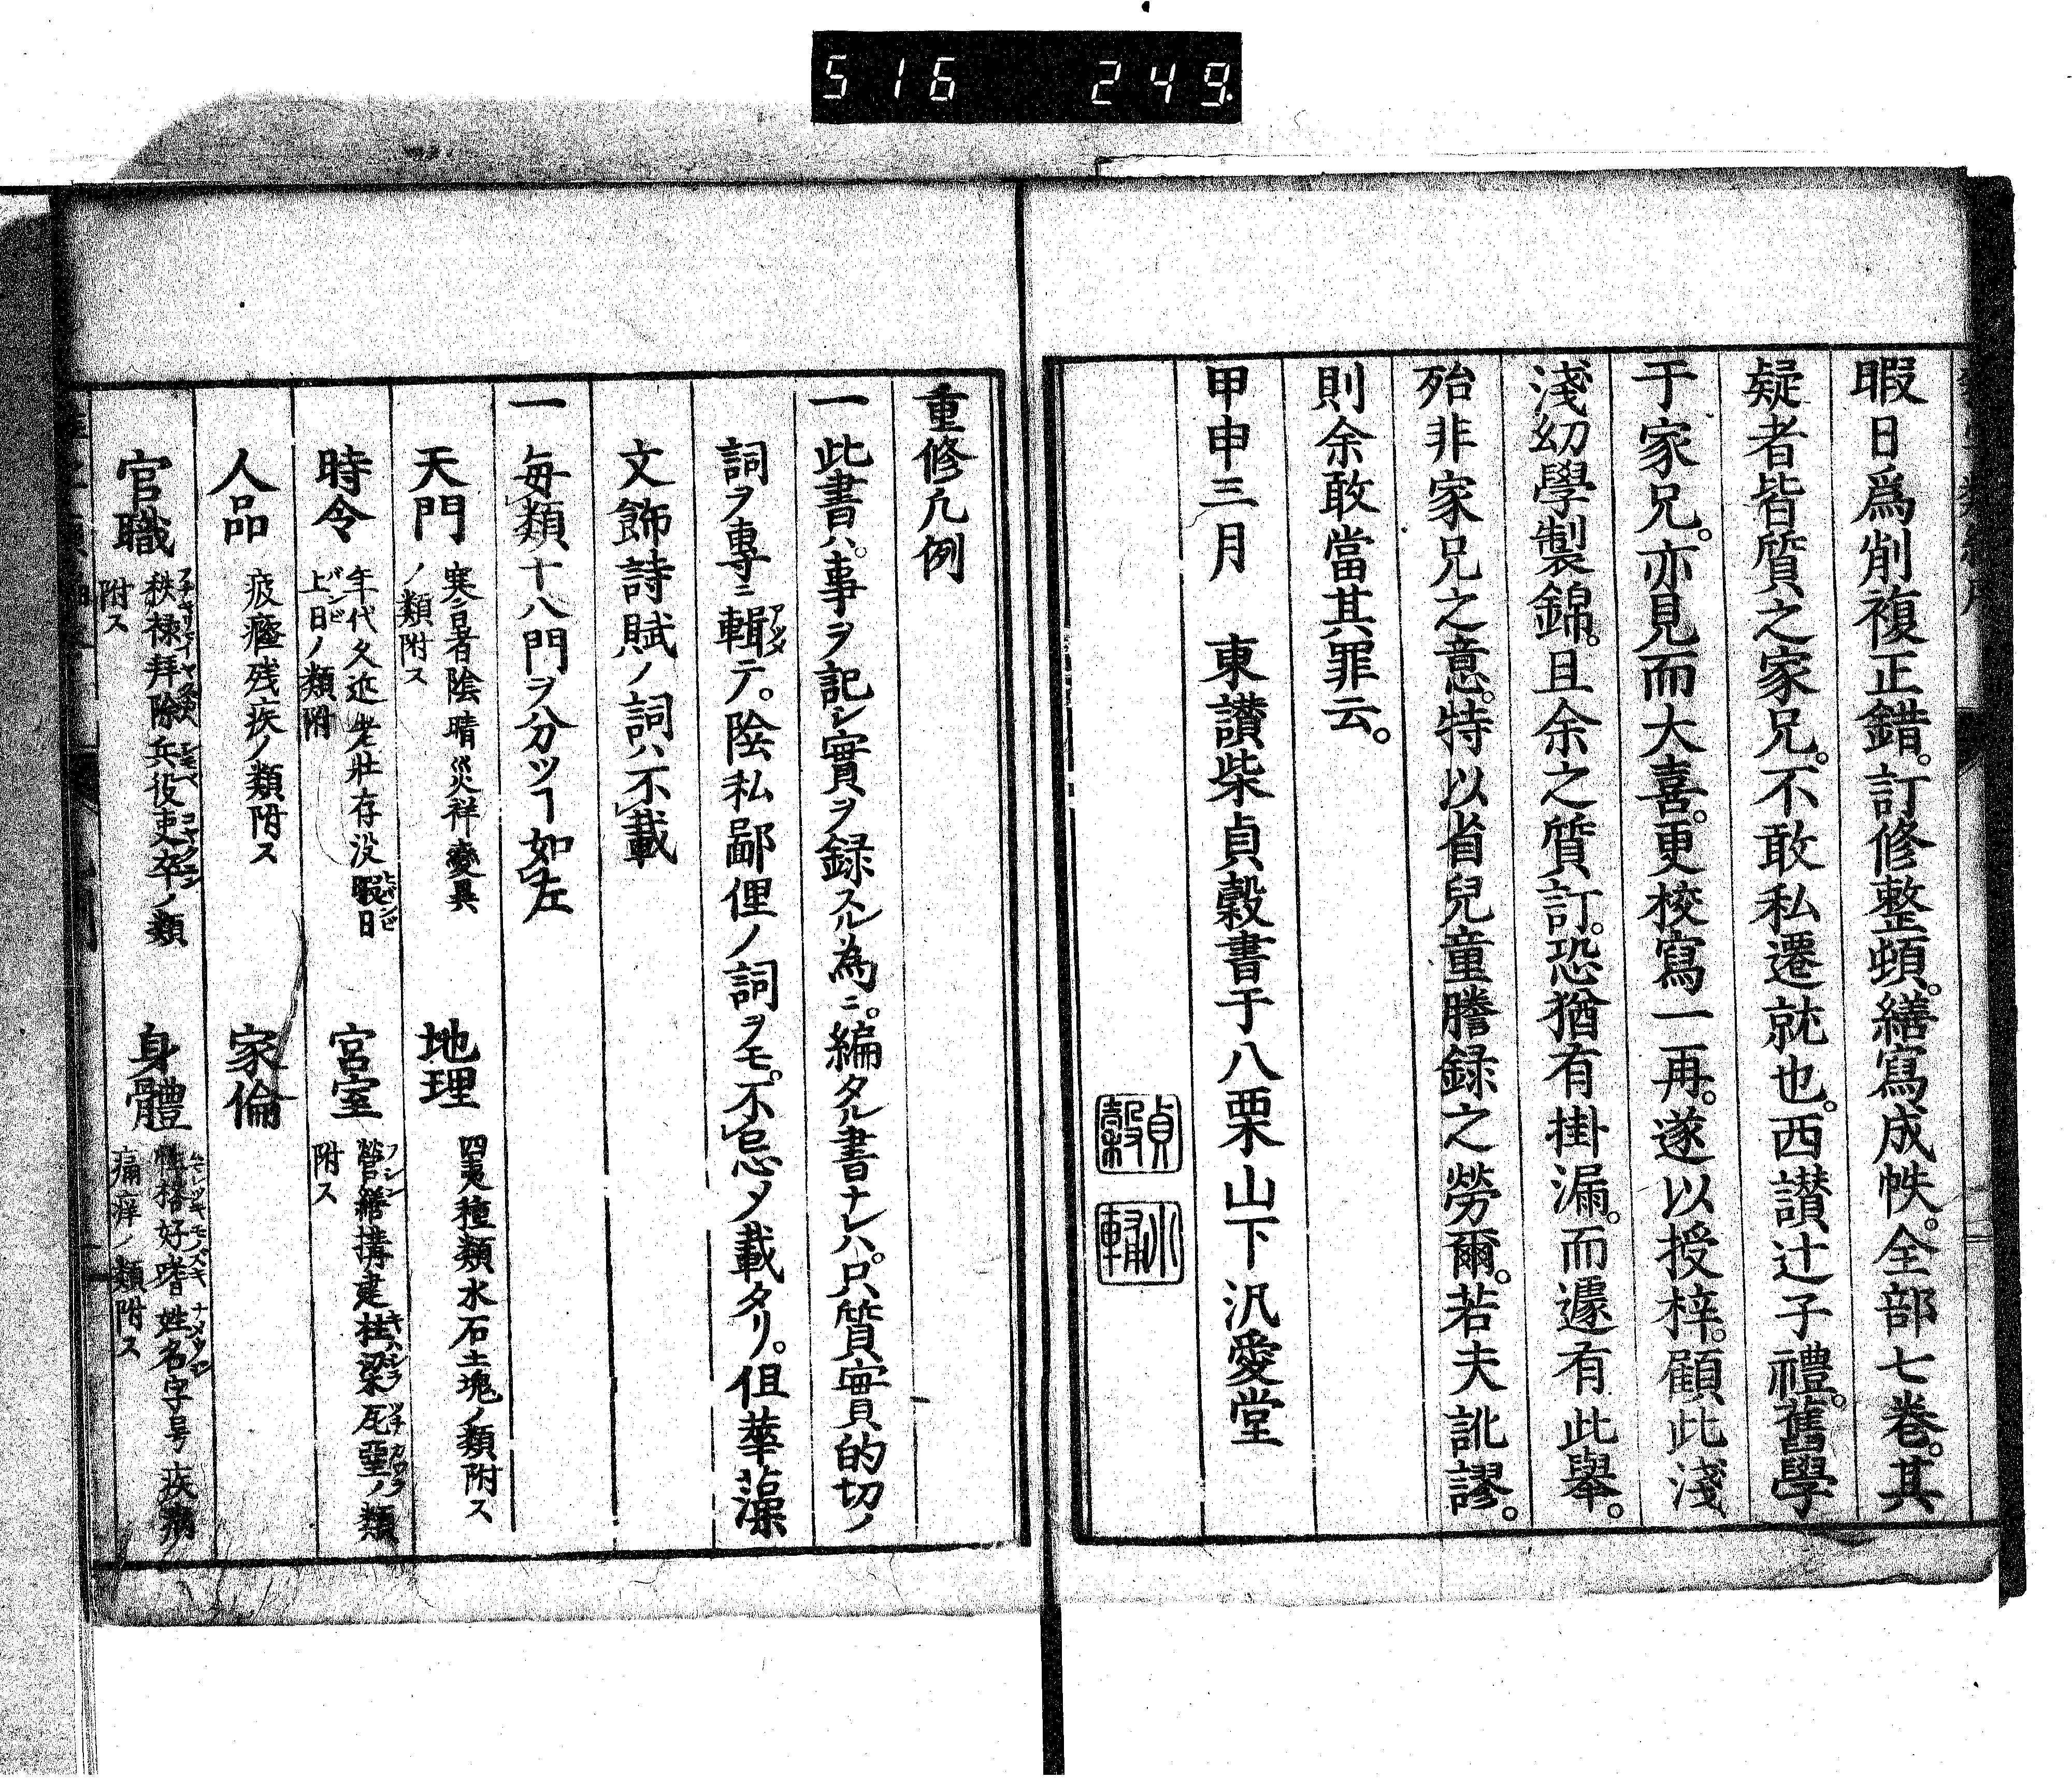 516 249
暇日爲削複正錯。訂修整頓。繕寫成帙。全部七巻。其
疑者皆質之家兄。不敢私遷就也。西讃辻子禮。舊學
于家兄。亦見而大喜。更校寫一再。遂以授梓。顧此淺
淺幼學製錦。且余之質訂。恐猶有掛漏。而遽有此舉。
殆非家兄之意。特以省兒童謄録之勞爾。若夫訛謬。
則余敢當其罪云。
甲申三月 東讃柴貞穀書于八栗山下汎愛堂
貞穀
重修凡例
一此書ハ。事ヲ記シ實ヲ録スル為ニ。編タル書ナレハ。只質實的切ノ
詞ヲ專ニ輯アツメテ。陰私鄙俚ノ詞ヲモ。不忌ノ載タリ。但華藻
文飾詩賦ノ詞ハ不載
一毎類十八門ヲ分ツヿ如左
天門 寒暑陰晴災祥變異
ノ類附ス
地理 四夷種類水石土塊ノ類附ス
時令 年代久近老壯存没暇日
上日ノ類附
宮室 營繕搆建柱梁瓦堊ノ類
附ス
人品 疲癃残疾ノ類附ス
家倫
官職 秩禄拜除兵役吏卒ノ類
附ス
身體 性格好嗜姓名字号疾病
痛痒ノ類附ス